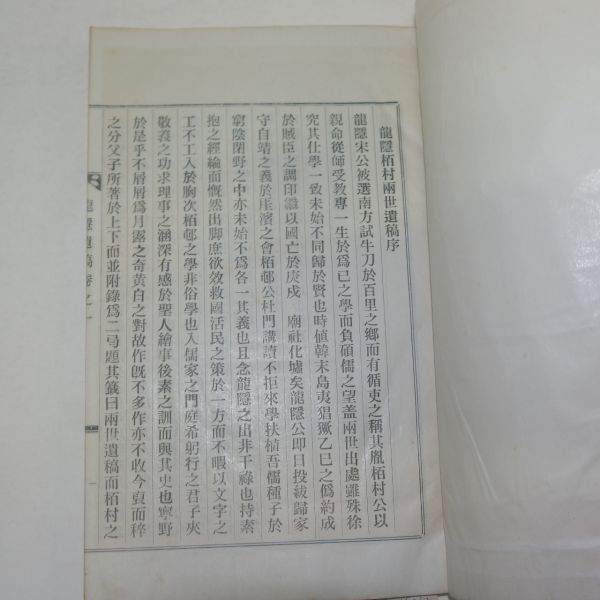 龍隱栢村兩世遺稿序
龍隱宋公被選南方試牛刀於百里之鄕而有循吏之稱其胤栢村公以
親命從師受敎專一生於爲己之學而負碩儒之望盖兩世出處雖殊徐
究其仕學一致未始不同歸於賢也時値韓末島夷猖獗乙巳之僞約成
於賊臣之調印繼以國亡於庚戌 廟社化墟矣龍隱公卽日投紱歸家
守自靖之義於厓濱之會栢邨公杜門講讀不拒來學扶植吾儒種子於
窮陰閉野之中亦未始不爲各一其義也且念龍隱之出非干祿也持素
抱之經綸而慨然出脚庶欲效救國活民之策於一方而不暇以文字之
工不工入於胸次栢邨之學非俗學也入儒家之門庭希躬行之君子夾
敬義之功求理事之涵深有感於聖人繪事後素之訓而與其史也寧野
於是乎不屑屑爲月露之奇黃白之對故作旣不多作亦不收今裒而稡
之分父子所著於上下而並附錄爲二弓題其籤曰兩世遺稿而栢村之
龍隱遺稿卷之一